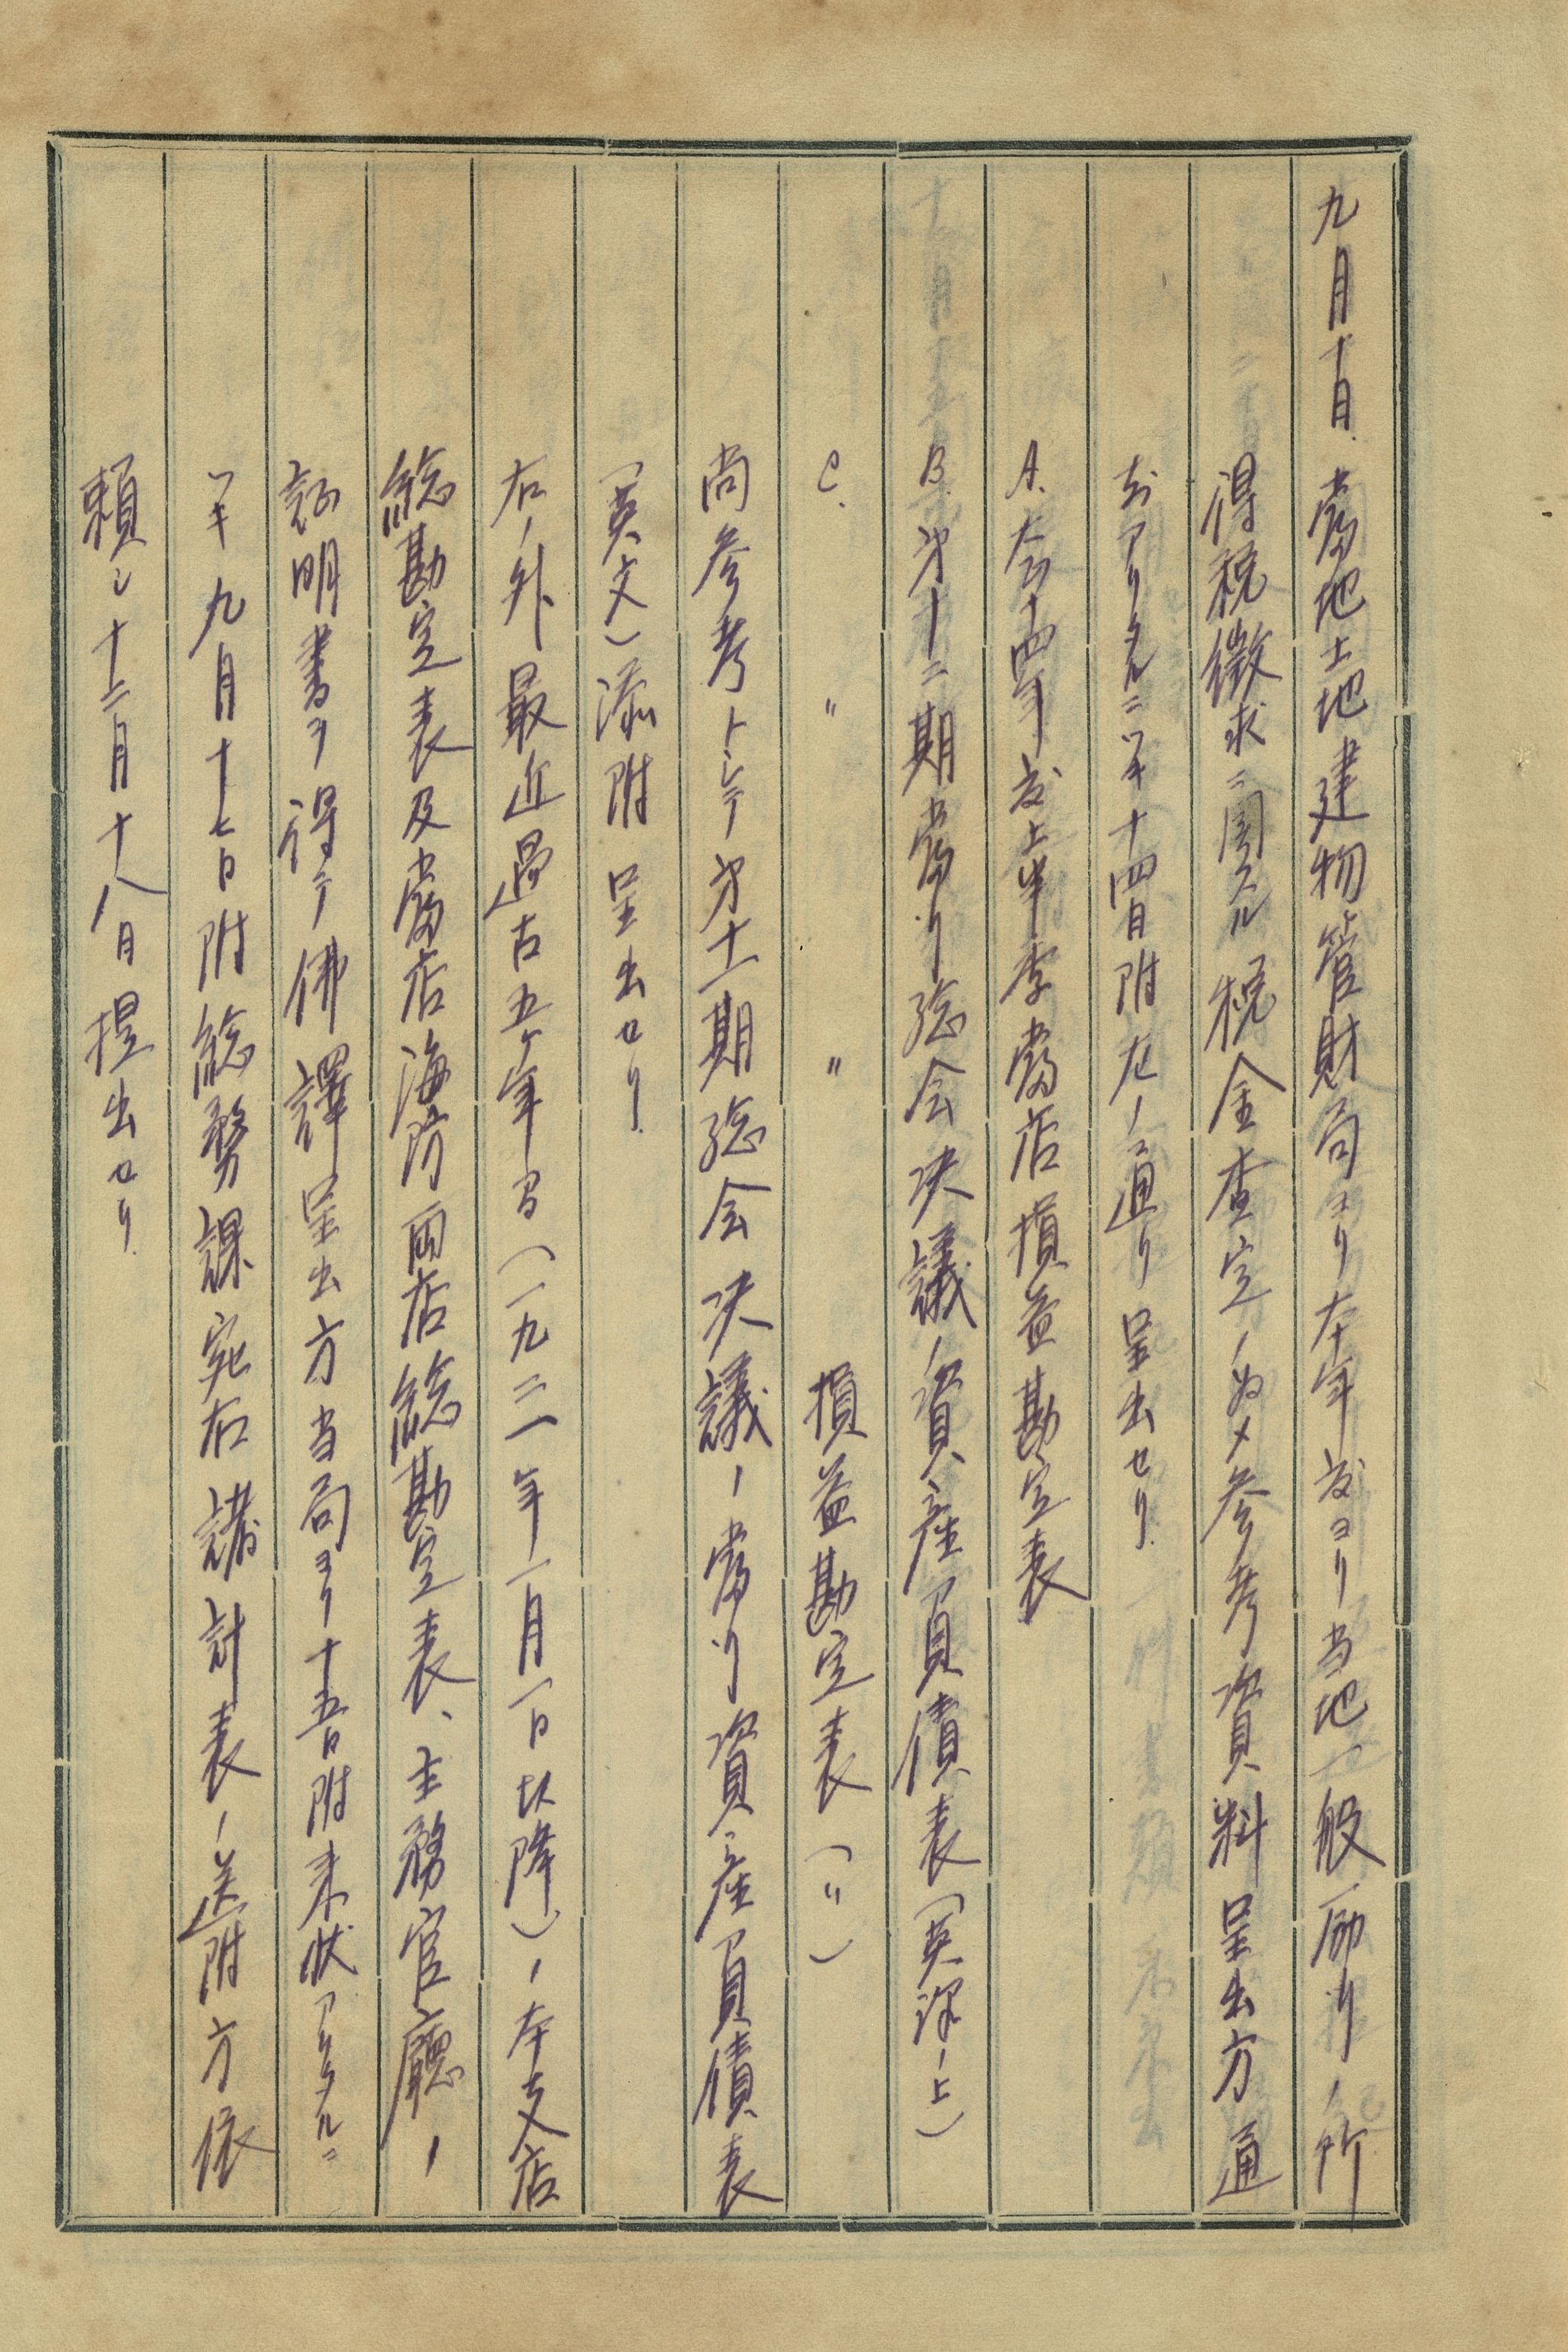 九月十日、當地土地建物管財局ヨリ本年度ヨリ当地一般商リノ所
得税徴求ニ関スル税金査定ノ為メ参考資料呈出方通
知アリタルニツキ十四日附左ノ通リ呈出セリ
A. 大正十四年度上半季當店損益勘定表
B. 第十二期當リ総会決議ノ資産負債表(英譯ノ上)
C. 〃 〃 損益勘定表(〃)
尚参考トシテ第十一期総会決議ノ當リ資産負債表
(英文)添附呈出セリ
右ノ外最近過去五ケ年間(一九二一年一月一日以降)ノ本支店
総勘定表及當店海防両店総勘定表、主務官廳ノ
証明書ヲ得テ佛譯呈出方当局ヨリ十五日附来状アリタルニ
ツキ九月十七日附総務課宛右諸計表ノ送附方依
頼シ十二月十八日提出セリ